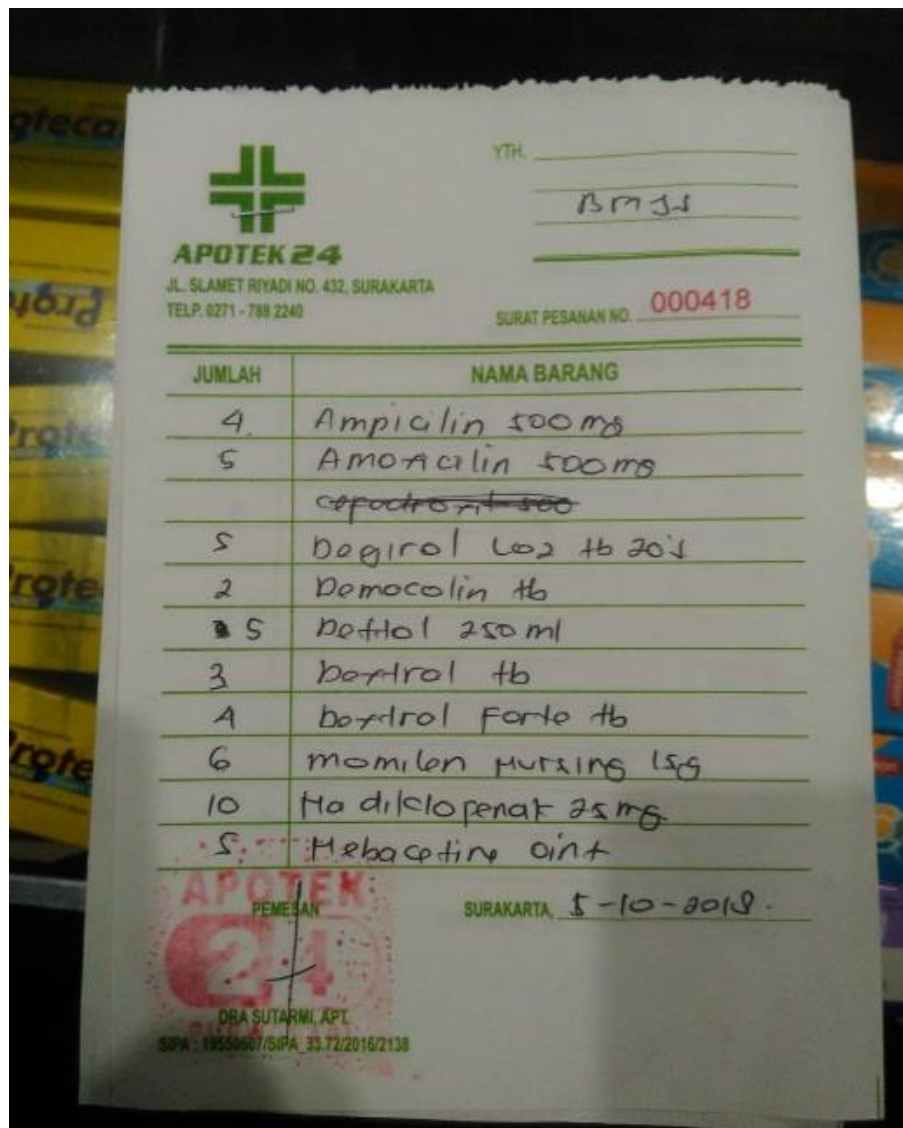 YTH.
BMSS
APOTEK 24
JL. SLAMET RIYADI NO. 432, SURAKARTA
TELP. 0271 - 788 2240
SURAT PESANAN NO. 000418
JUMLAH NAMA BARANG
4. Ampicilin 500 mg
5 Amoxcilin 500 mg
5 Degirol Loz tb 20's
2 Democolin tb
5 Dettol 250 ml
3 Dextrol tb
4 Dextrol Forte tb
6 Momilen Nursing 15g
10 Na diklopenak 25 mg
5 Nebacetine oint
APOTEK
24
PEMESAN
SURAKARTA, 5-10-2018.
DRA SUTARMI, APT.
SIPA : 19550607/SIPA_33.72/2016/2138